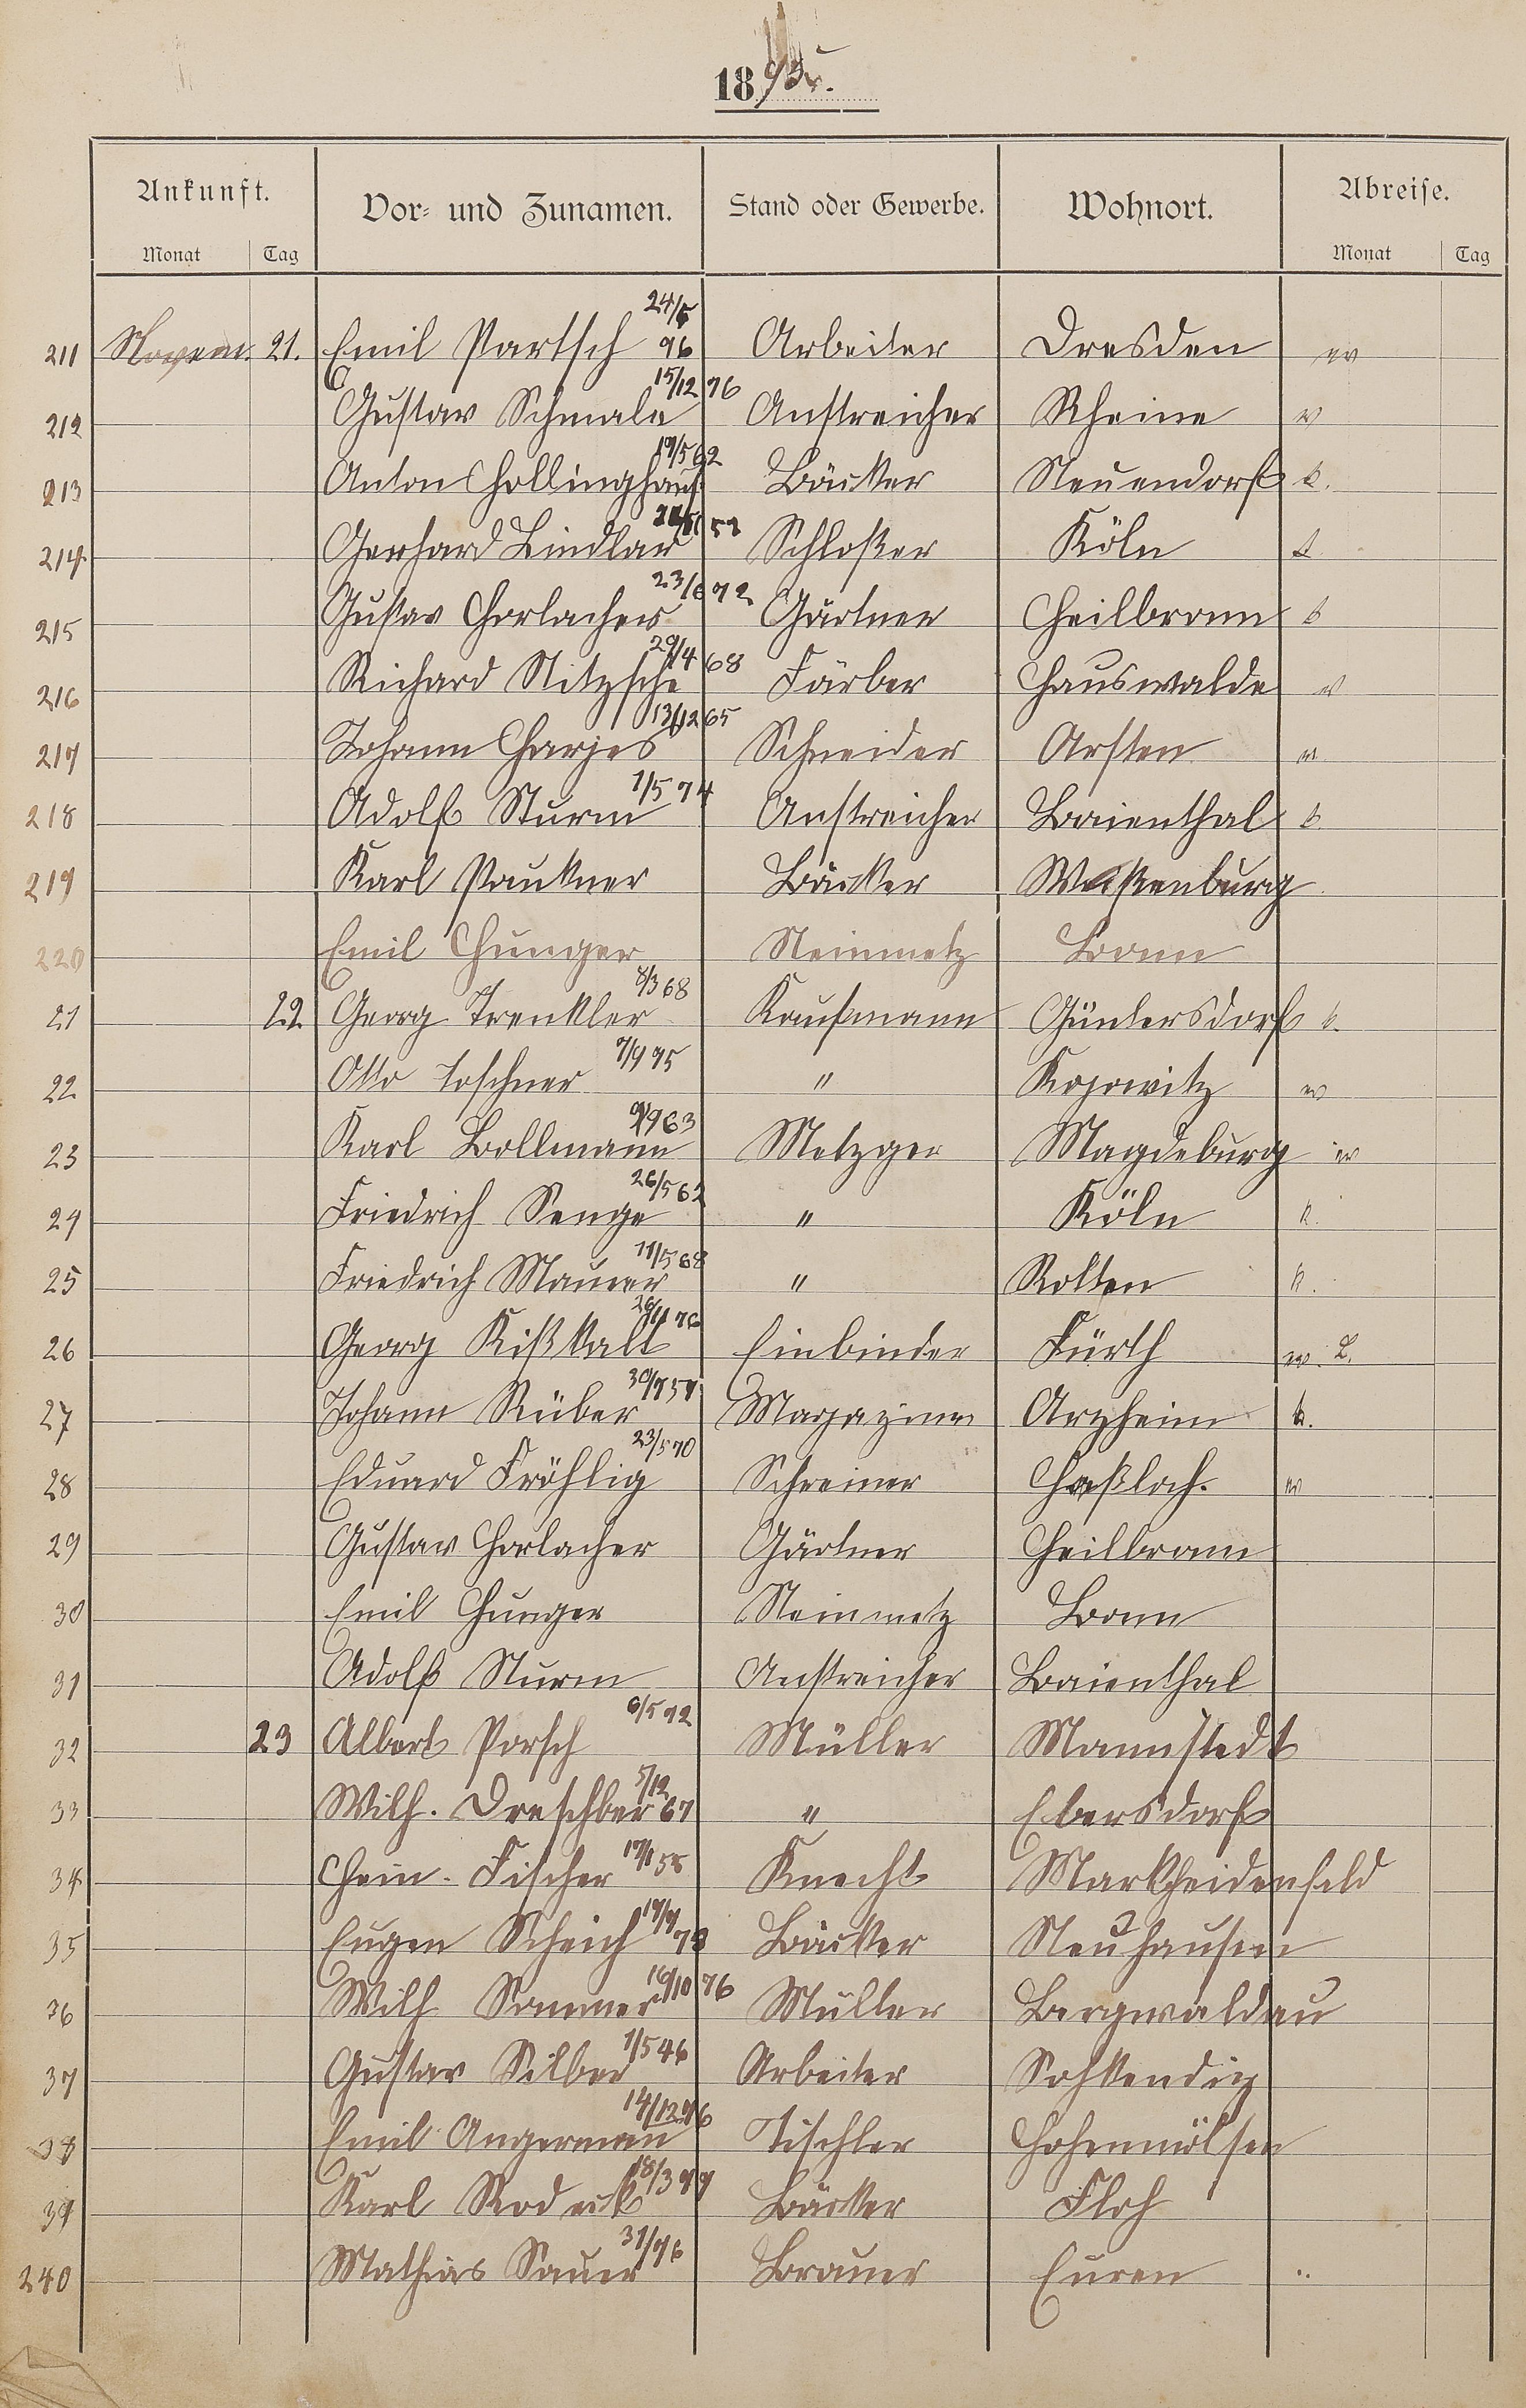 1895.
Ankunft. Vor- und Zunamen. Stand oder Gewerbe. Wohnort. Abreise.
Monat Tag Monat Tag
211 Novem. 21. Emil Partsch 24/5 96 Arbeiter Dresden ev
212 Gustav Schmale 15/12 76 Anstreicher Rheine
213 Anton Hollinghaus 19/5 62 Bäcker Neuendorf k.
214 Gerhard Lindlar 52 Schloßer Köln
215 Gustav Horlacher 23/6 72 Gärtner Heilbronn
216 Richard Nitzsche 29/4 68 Färber Hauswalde
217 Johann Harjes 13/12 65 Schneider Arsten
218 Adolf Sturm 1/5 74 Anstreicher Baienthal
219 Karl Paukner Bäcker Weißenburg
220 Emil Hunger Steinmetz Bonn
21 22. Georg Trenkler 8/3 68 Kaufmann Güntersdorf k.
22 Otto Loschner 7/9 75 " Kojowitz ev
23 Karl Bollmann 9/9 63 Metzger Magdeburg ev
24 Friedrich Senge 26/5 62 " Köln k.
25 Friedrich Maurer 11/5 68 " Rolten k.
26 Georg Kißkalt 26/11 76 Einbinder Fürth ev. L.
27 Johann Rüber 30/7 57 Magaziner Arzheim k.
28 Eduard Fröhlig 23/5 70 Schreiner Haßloch. ev
29 Gustav Horlacher Gärtner Heilbronn
30 Emil Hunger Steinmetz Bonn
31 Adolf Sturm Anstreicher Baienthal
32 23 Albert Porsch 6/5 72 Müller Mannstedt
33 Wilh. Dreschber 5/12 67 " Ebersdorf
34 Hein. Fischer 17/1 55 Knecht Markheidenfeld
35 Eugen Scheich 19/9 78 Bäcker Neuhausen
36 Wilh Sommer 16/10 76 Müller Bergwaldau
37 Gustav Silber 1/5 46 Arbeiter
38 Emil Angerman 14/12 76 Tischler Hohenmölsen
39 Karl Rodeck 18/3 77 Bäcker Floh
240 Mathias Sauer 31/7 6 Brauer Euren "